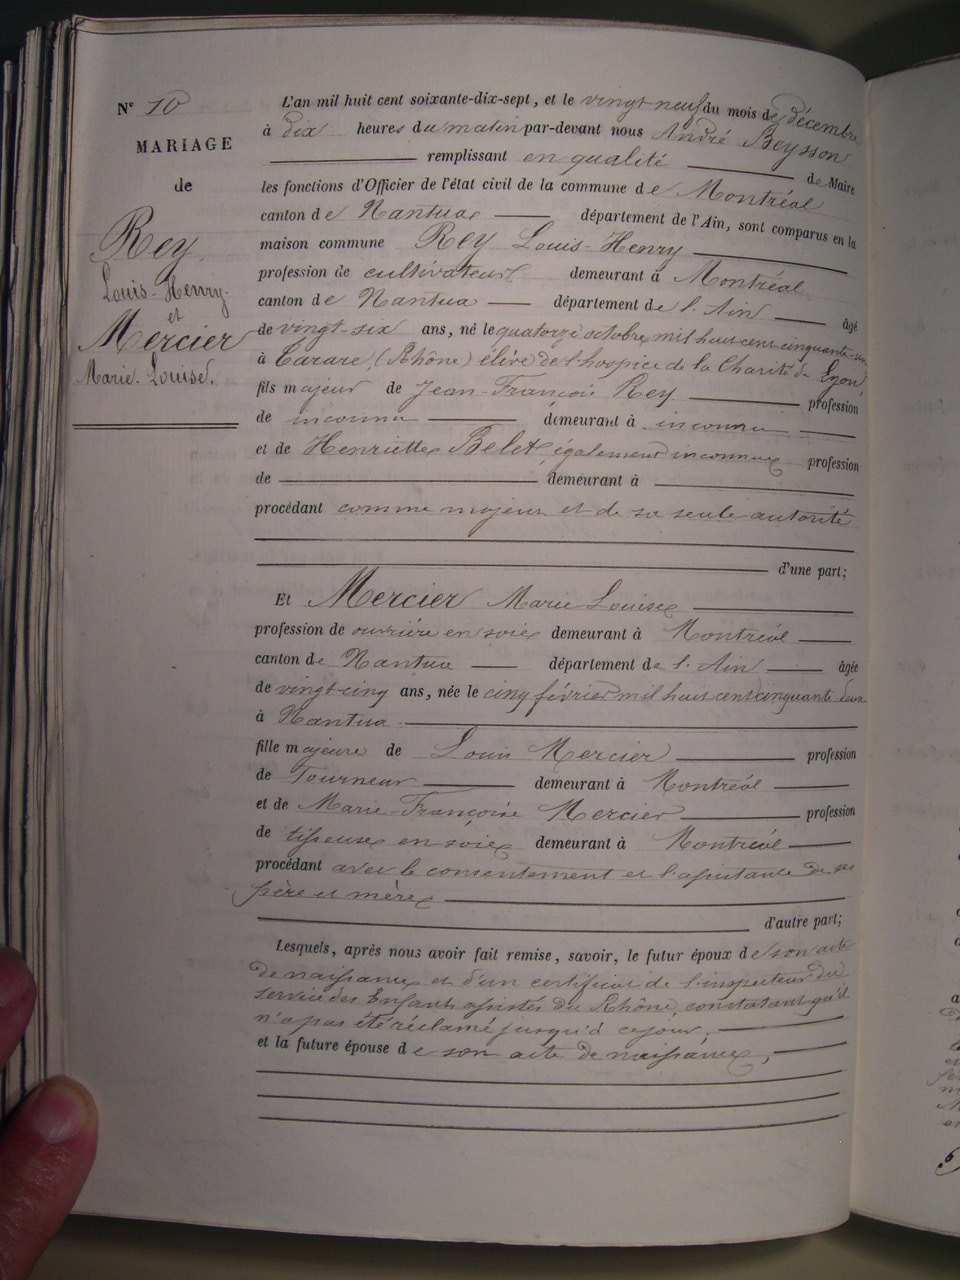 N° 10
MARIAGE
de
Rey
Louis-Henry
et
Mercier
Marie-Louise.
L'an mil huit cent soixante-dix-sept, et le vingt neuf du mois de décembre
à dix heures du matin par-devant nous André Beysson
remplissant en qualité de Maire
les fonctions d'Officier de l'état civil de la commune de Montréal
canton de Nantua département de l'Ain, sont comparus en la
maison commune Rey Louis-Henry
profession de cultivateur demeurant à Montréal
canton de Nantua département de l'Ain âgé
de vingt-six ans, né le quatorze octobre mil huit cent cinquante-un
à Tarare, (Rhône) élève de l'hospice de la Charité de Lyon,
fils majeur de Jean-François Rey profession
de inconnu demeurant à inconnu
et de Henriette Belet, également inconnue profession
de demeurant à
procédant comme majeur et de sa seule autorité
d'une part;
Et Mercier Marie Louise
profession de ouvrière en soie demeurant à Montréal
canton de Nantua département de l'Ain âgée
de vingt-cinq ans, née le cinq février mil huit cent cinquante deux
à Nantua
fille majeure de Louis Mercier profession
de Tourneur demeurant à Montréal
et de Marie-Françoise Mercier profession
de tisseuse en soie demeurant à Montréal
procédant avec le consentement et l'assistance de ses
père et mère
d'autre part;
Lesquels, après nous avoir fait remise, savoir, le futur époux de son acte
de naissance et d'un certificat de l'inspecteur du
service des Enfants assistés du Rhône, constatant qu'il
n'a pas été réclamé jusqu'à ce jour,
et la future épouse de son acte de naissance,